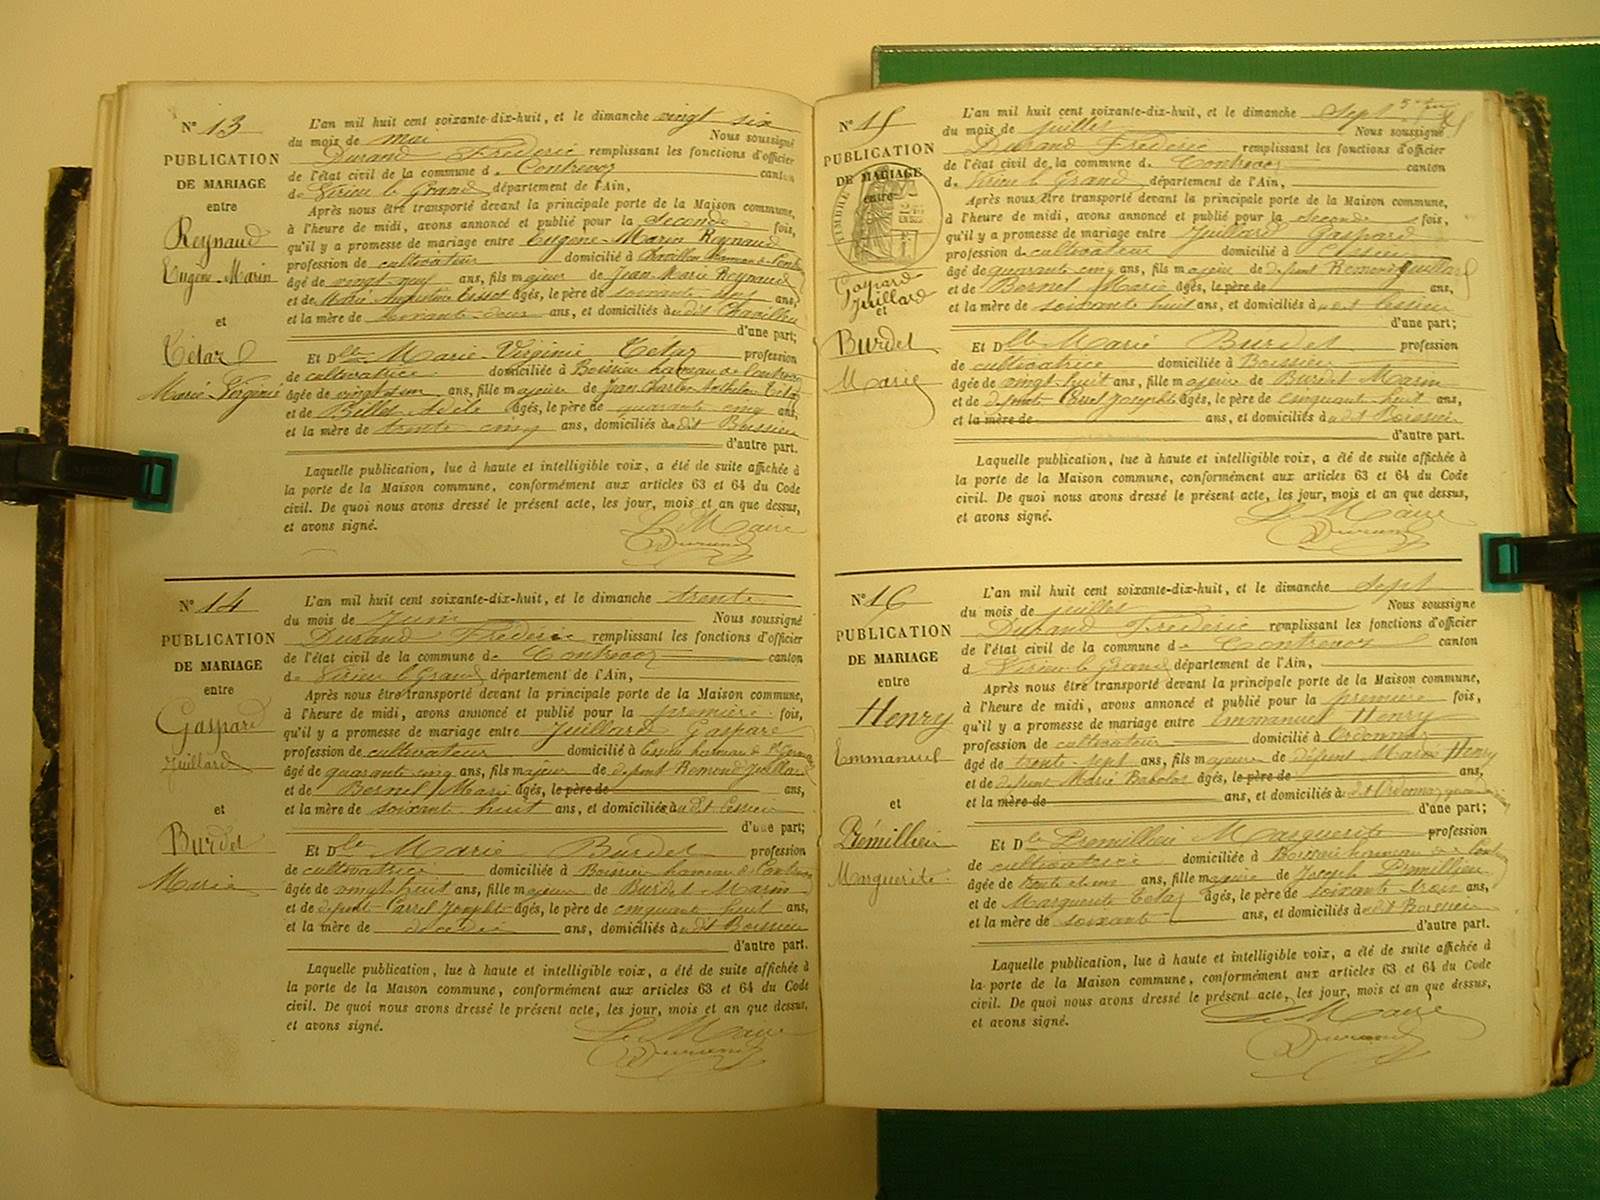 N° 13
PUBLICATION
DE MARIAGE
entre
Reynaud
Eugène-Marin
et
Tétaz
Marie-Virginie
L'an mil huit cent soixante-dix-huit, et le dimanche vingt six
du mois de mai Nous soussigné
Durand Frédéric remplissant les fonctions d'officier
de l'état civil de la commune de Contrevoz canton
de Virieu le Grand département de l'Ain,
Après nous être transporté devant la principale porte de la Maison commune,
à l'heure de midi, avons annoncé et publié pour la seconde fois,
qu'il y a promesse de mariage entre Eugène-Marin Reynaud
profession de cultivateur domicilié à
âgé de vingt neuf ans, fils majeur de Jean-Marie Reynaud
et de Marie Augustine âgés, le père de soixante ans,
et la mère de ans, et domiciliés audit
d'une part;
Et Dlle Marie-Virginie Tetaz profession
de cultivatrice domiciliée à Boissieu hameau de Contrevoz
âgée de vingt et un ans, fille majeure de Jean Charles Anthelme Tétaz
et de Billet Adèle âgés, le père de quarante cinq ans,
et la mère de trente cinq ans, domiciliés audit Boissieu
d'autre part.
Laquelle publication, lue à haute et intelligible voix, a été de suite affichée à
la porte de la Maison commune, conformément aux articles 63 et 64 du Code
civil. De quoi nous avons dressé le présent acte, les jour, mois et an que dessus,
et avons signé.
Le Maire
Durand
N° 14
PUBLICATION
DE MARIAGE
entre
Gaspard
Juillard
et
Burdet
Marie
L'an mil huit cent soixante-dix-huit, et le dimanche trente
du mois de Juin Nous soussigné
Durand Frédéric remplissant les fonctions d'officier
de l'état civil de la commune de Contrevoz canton
de Virieu le Grand département de l'Ain,
Après nous être transporté devant la principale porte de la Maison commune,
à l'heure de midi, avons annoncé et publié pour la première fois,
qu'il y a promesse de mariage entre Juillard Gaspard
profession de cultivateur domicilié à Cessieu hameau de
âgé de quarante cinq ans, fils majeur de défunt Remond Juillard
et de Bornet Marie âgés, le père de ans,
et la mère de soixante huit ans, et domiciliés audit Cessieu
d'une part;
Et Dlle Marie Burdet profession
de cultivatrice domiciliée à Boissieu hameau de Contrevoz
âgée de vingt huit ans, fille majeure de Burdet Marin
et de défunte Carrel Josephte âgés, le père de cinquante huit ans,
et la mère de décédée ans, domiciliés audit Boissieu
d'autre part.
Laquelle publication, lue à haute et intelligible voix, a été de suite affichée à
la porte de la Maison commune, conformément aux articles 63 et 64 du Code
civil. De quoi nous avons dressé le présent acte, les jour, mois et an que dessus,
et avons signé.
Le Maire
Durand
N° 15
PUBLICATION
DE MARIAGE
entre
TIMBRE
Gaspard
Juillard
et
Burdet
Marie
L'an mil huit cent soixante-dix-huit, et le dimanche Sept
du mois de juillet Nous soussigné
Durand Frédéric remplissant les fonctions d'officier
de l'état civil de la commune de Contrevoz canton
de Virieu le Grand département de l'Ain,
Après nous être transporté devant la principale porte de la Maison commune,
à l'heure de midi, avons annoncé et publié pour la seconde fois,
qu'il y a promesse de mariage entre Juillard Gaspard
profession de cultivateur domicilié à Cessieu
âgé de quarante cinq ans, fils majeur de défunt Remond Juillard
et de Bornet Marie âgés, le père de ans,
et la mère de soixante huit ans, et domiciliés audit Cessieu
d'une part;
Et Dlle Marie Burdet profession
de cultivatrice domiciliée à Boissieu
âgée de vingt huit ans, fille majeure de Burdet Marin
et de défunte Carrel Josephte âgés, le père de cinquante huit ans,
et la mère de ans, et domiciliés audit Boissieu
d'autre part.
Laquelle publication, lue à haute et intelligible voix, a été de suite affichée à
la porte de la Maison commune, conformément aux articles 63 et 64 du Code
civil. De quoi nous avons dressé le présent acte, les jour, mois et an que dessus,
et avons signé.
Le Maire
Durand
N° 16
PUBLICATION
DE MARIAGE
entre
Henry
Emmanuel
et
Prémillieu
Marguerite
L'an mil huit cent soixante-dix-huit, et le dimanche Sept
du mois de juillet Nous soussigné
Durand Frédéric remplissant les fonctions d'officier
de l'état civil de la commune de Contrevoz canton
de Virieu le Grand département de l'Ain,
Après nous être transporté devant la principale porte de la Maison commune,
à l'heure de midi, avons annoncé et publié pour la première fois,
qu'il y a promesse de mariage entre Emmanuel Henry
profession de cultivateur domicilié à Ordonnaz
âgé de trente-sept ans, fils majeur de défunt Marin Henry
et de défunte Marie âgés, le père de ans,
et la mère de ans, et domiciliés audit Ordonnaz
d'une part;
Et Dlle Premillieu Marguerite profession
de cultivatrice domiciliée à Boissieu hameau de Contrevoz
âgée de trente et un ans, fille majeure de Joseph Prémillieu
et de Marguerite Tétaz âgés, le père de soixante trois ans,
et la mère de soixante ans, et domiciliés audit Boissieu
d'autre part.
Laquelle publication, lue à haute et intelligible voix, a été de suite affichée à
la porte de la Maison commune, conformément aux articles 63 et 64 du Code
civil. De quoi nous avons dressé le présent acte, les jour, mois et an que dessus,
et avons signé.
Le Maire
Durand